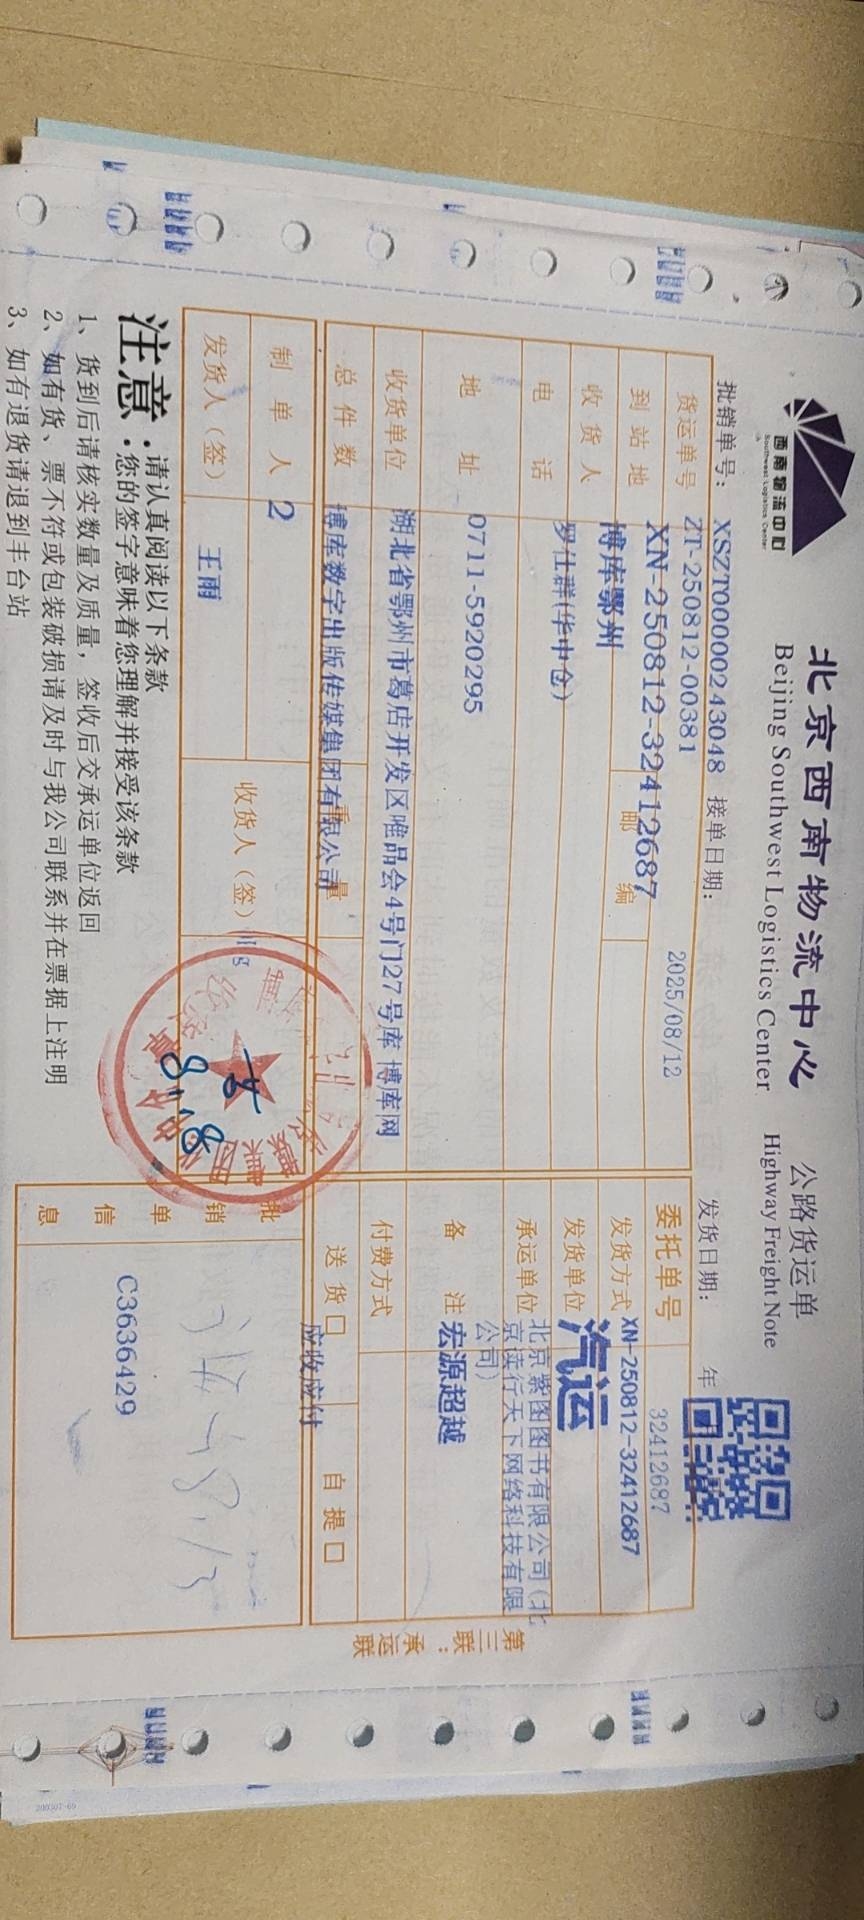 西南物流中心
Southwest Logistics Center
北京西南物流中心
Beijing Southwest Logistics Center
公路货运单
Highway Freight Note
批销单号: XSZT00000243048 接单日期: 2025/08/12 发货日期: 年
货运单号 ZT-250812-00381
到站地 XN-250812-32412687 邮编
收货人 博库鄂州
电话 罗仕群(华中仓)
地址 0711-5920295
收货单位 湖北省鄂州市葛店开发区唯品会4号门27号库 博库网
总件数 博库数字出版传媒集团有限公司 重量
制单人 2
发货人(签) 王雨 收货人(签)
委托单号 32412687
发货方式 XN-250812-32412687
发货单位 汽运
承运单位 北京紫图图书有限公司(北
京读行天下网络科技有限
公司)
备注 宏源超越
付费方式
送货□ 应收应付 自提□
批销单信息
C3636429
8.18
注意:
请认真阅读以下条款
您的签字意味着您理解并接受该条款
1、货到后请核实数量及质量，签收后交承运单位返回
2、如有货、票不符或包装破损请及时与我公司联系并在票据上注明
3、如有退货请退到丰台站
第三联：承运联